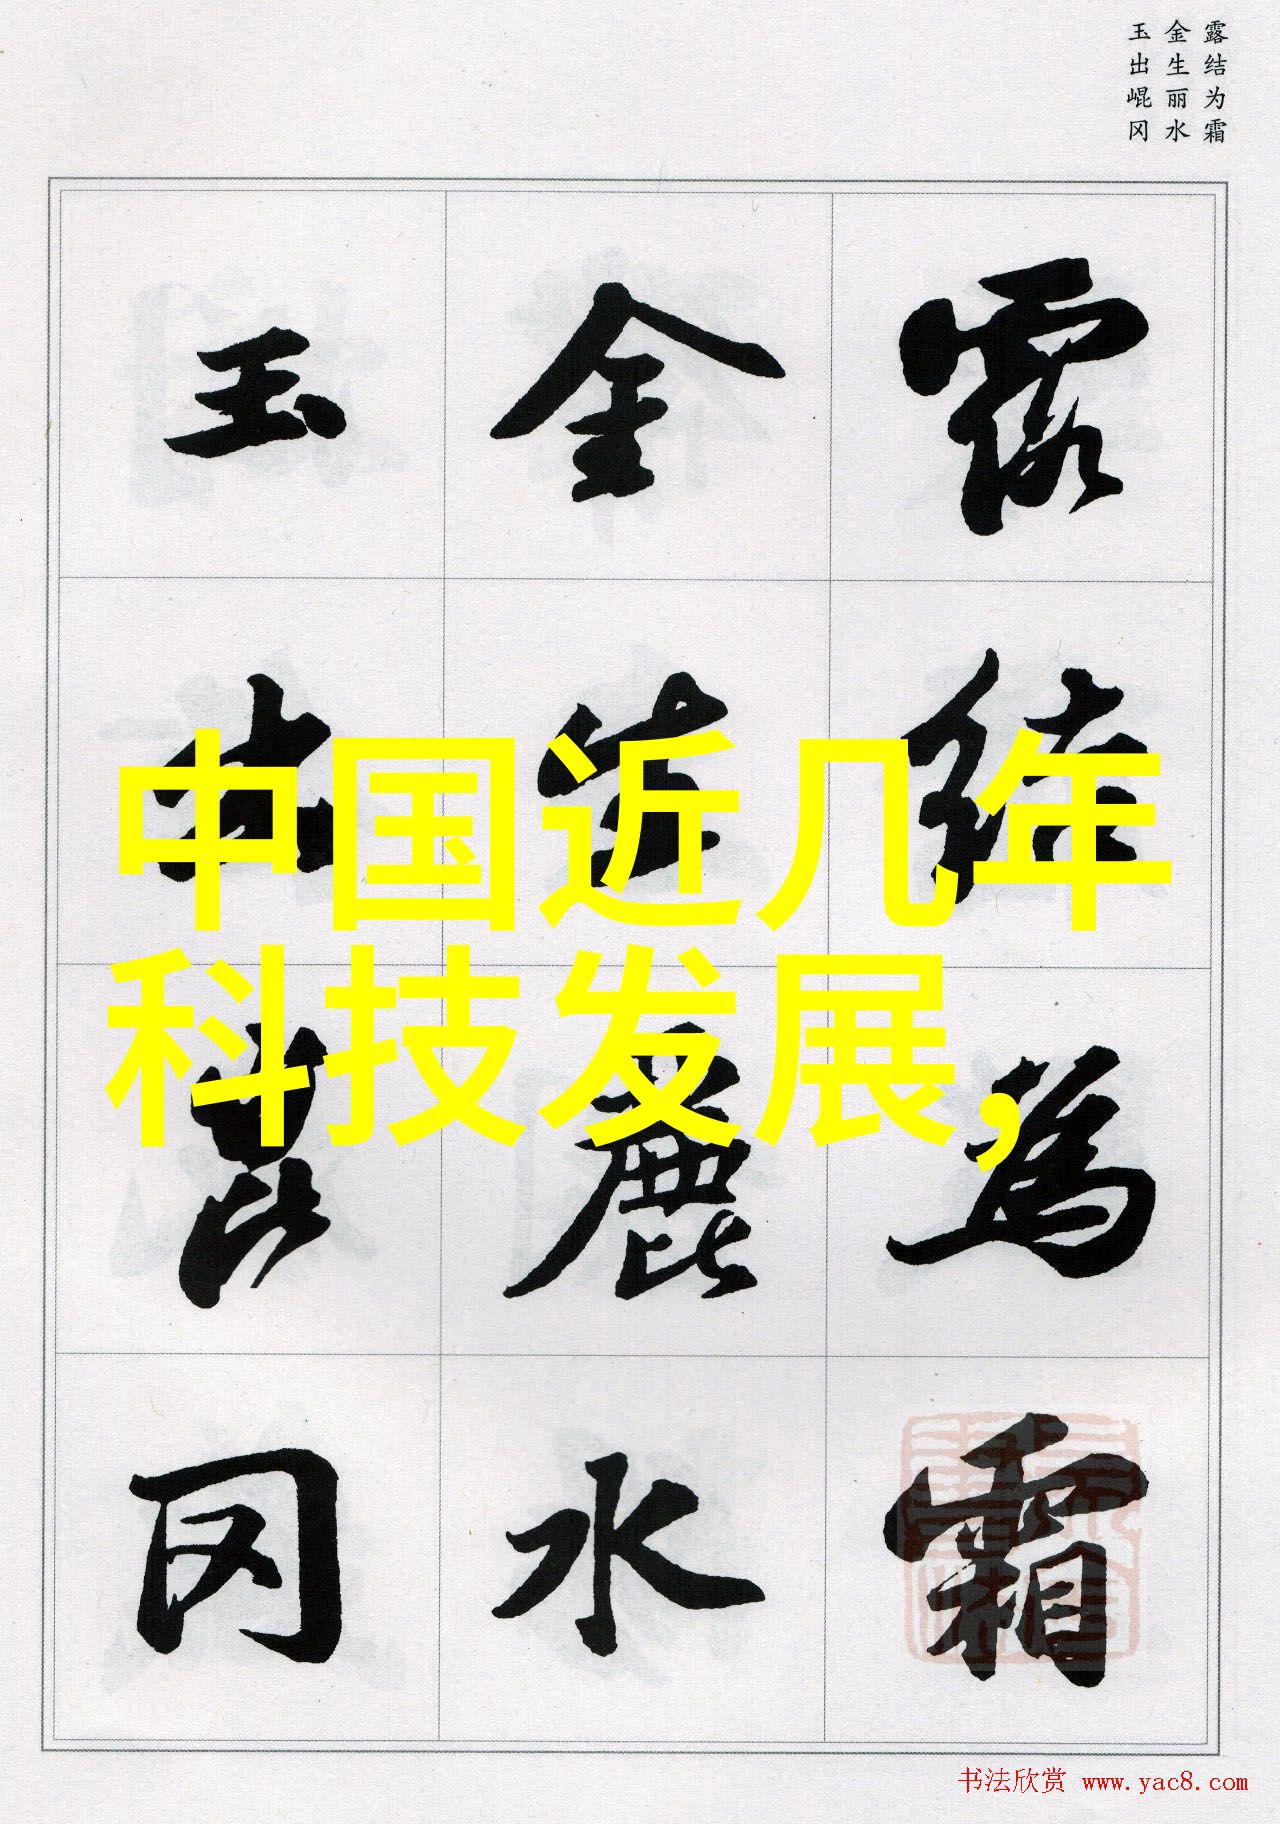 露结为霜
金生丽水
玉出崐冈
露結為霜
金生麗水
玉出崑冈
中国近几年
科技发展，
书法欣赏 www.yac8.com